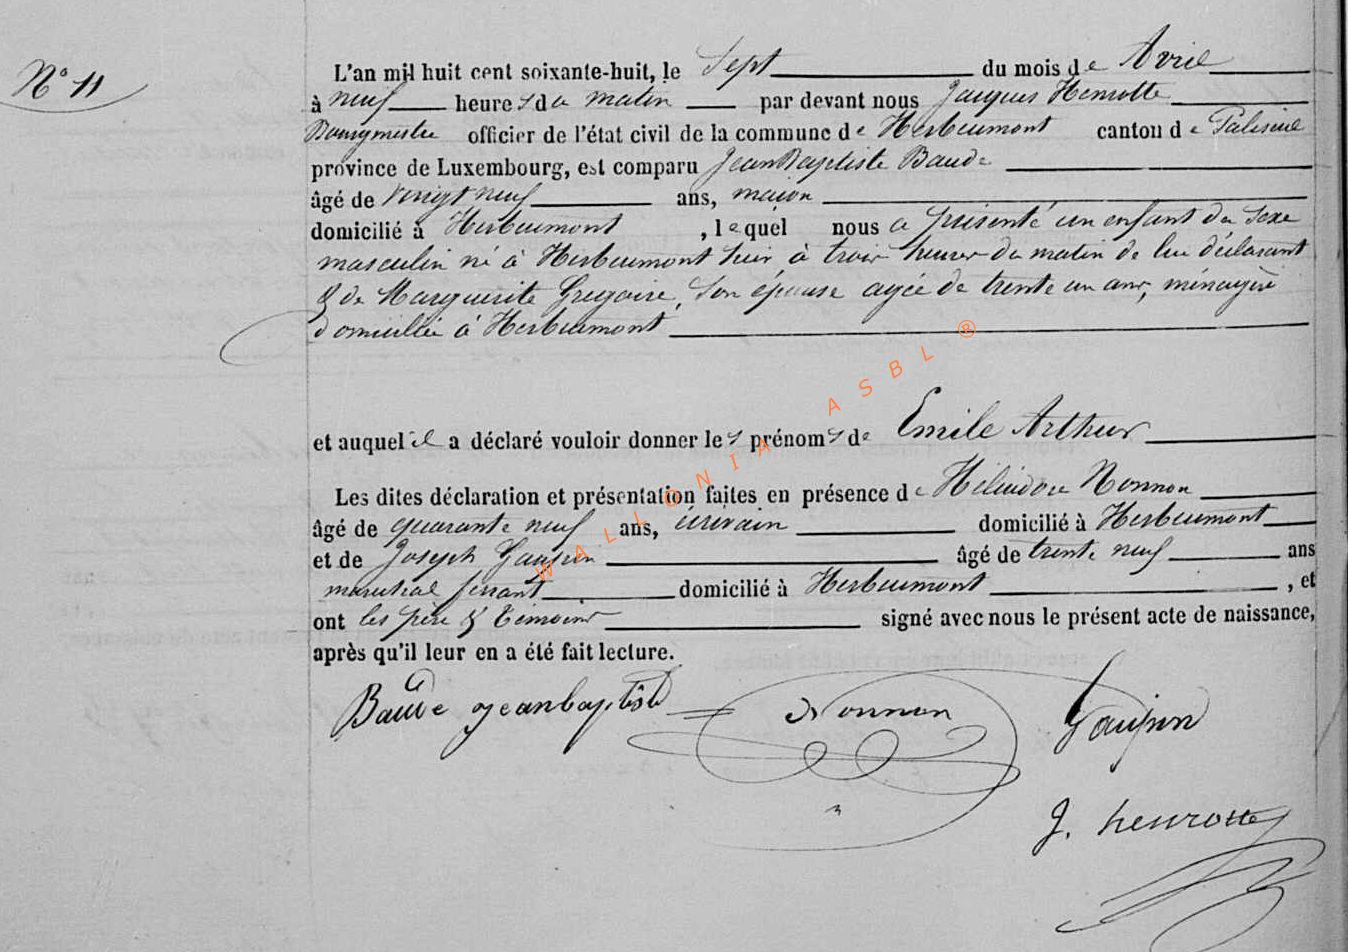 N° 11
L'an mil huit cent soixante-huit, le Sept du mois de Avril
à neuf heures da matin par devant nous Jacques Henrotte
Bourgmestre officier de l'état civil de la commune de Herbeumont canton de Paliseul
province de Luxembourg, est comparu Jean Baptiste Baude
âgé de vingt neuf ans, maçon
domicilié à Herbeumont, lequel nous a présenté un enfant du sexe
masculin né à Herbeumont hier à trois heures du matin de lui déclarant
& de Marguerite Gregoire, son épouse agée de trente un ans, ménagère
domiciliée à Herbeumont
et auquel il a déclaré vouloir donner les prénoms de Emile Arthur
Les dites déclaration et présentation faites en présence de Héliodore Nonnon
âgé de quarante neuf ans, écrivain domicilié à Herbeumont
et de Joseph Gaupin âgé de trente neuf ans
marechal ferrant domicilié à Herbeumont, et
ont les père & témoins signé avec nous le présent acte de naissance,
après qu'il leur en a été fait lecture.
Baude jeanbaptiste Nonnon Gaupin
J. henrotte
WALLONIA ASBL ®